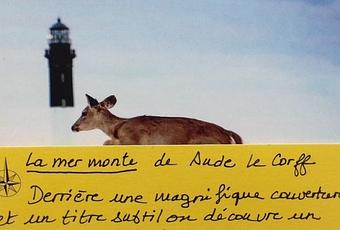 La mer monte de Aude le Corff
Derrière une magnifique couverture
et un titre subtil on découvre un